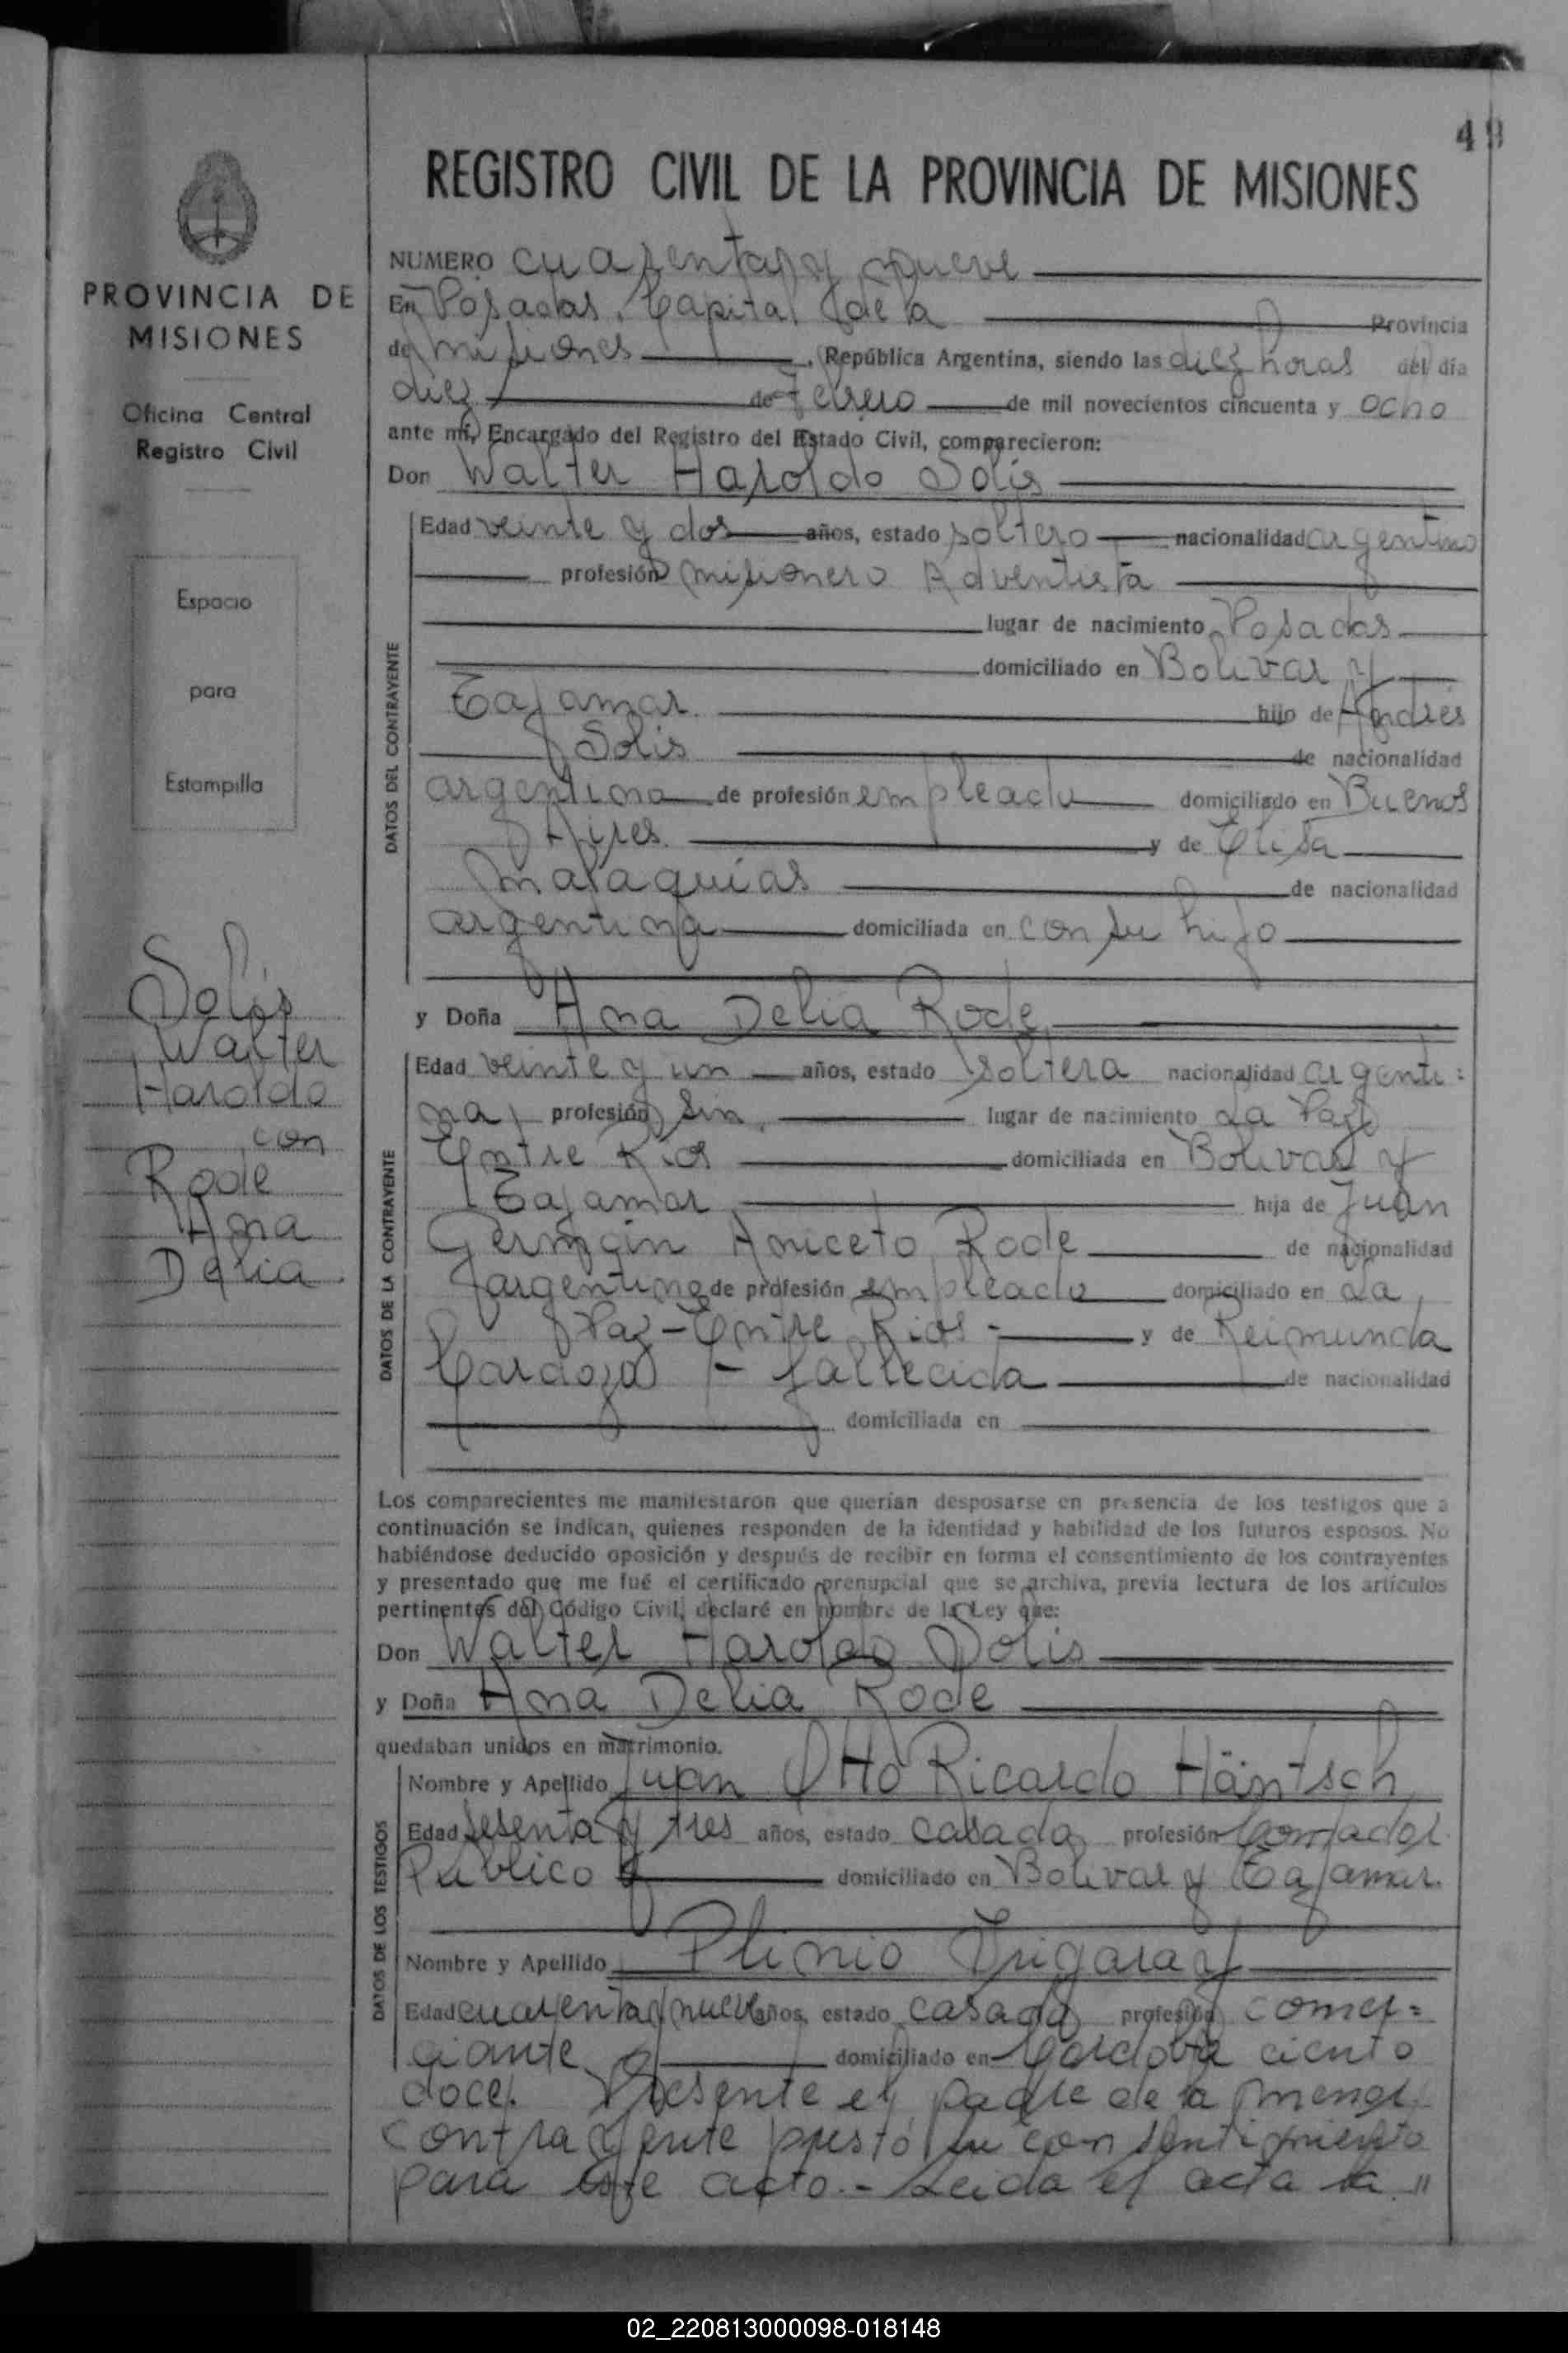 49
REGISTRO CIVIL DE LA PROVINCIA DE MISIONES
PROVINCIA DE
MISIONES
Oficina Central
Registro Civil
Espacio
para
Estampilla
Solís
Walter
Haroldo
con
Rode
Ana
Delia
NUMERO cuarenta y nueve
En Posadas, Capital de la Provincia
de misiones, República Argentina, siendo las diez horas del día
diez de Febrero de mil novecientos cincuenta y ocho
ante mí, Encargado del Registro del Estado Civil, comparecieron:
Don Walter Haroldo Solís
DATOS DEL CONTRAYENTE
Edad veinte y dos años, estado soltero nacionalidad argentino
profesión misionero Adventista
lugar de nacimiento Posadas
domiciliado en Bolivar y
Tajamar. hijo de Andrés
Solis de nacionalidad
argentina de profesión empleado domiciliado en Buenos
Aires. y de Elisa
Malaquías de nacionalidad
argentina domiciliada en con su hijo
y Doña Ana Delia Rode
DATOS DE LA CONTRAYENTE
Edad veinte y un años, estado soltera nacionalidad argenti=
na, profesión sin, lugar de nacimiento La Paz
Entre Rios domiciliada en Bolivar y
Tajamar hija de Juan
Germán Aniceto Rode de nacionalidad
argentina de profesión empleado domiciliado en La
Paz-Entre Rios- y de Reimunda
Cardozo - fallecida de nacionalidad
domiciliada en
Los comparecientes me manifestaron que querían desposarse en presencia de los testigos que a
continuación se indican, quienes responden de la identidad y habilidad de los futuros esposos. No
habiéndose deducido oposición y después de recibir en forma el consentimiento de los contrayentes
y presentado que me fué el certificado prenupcial que se archiva, previa lectura de los artículos
pertinentes del Código Civil, declaré en nombre de la Ley que:
Don Walter Haroldo Solis
y Doña Ana Delia Rode
quedaban unidos en matrimonio.
DATOS DE LOS TESTIGOS
Nombre y Apellido Juan Otto Ricardo Häntsch
Edad sesenta y tres años, estado casado profesión Contador
Publico y domiciliado en Bolivar y Tajamar.
Nombre y Apellido Plinio Irigaray
Edad cuarenta y nueve años, estado casado profesión comer=
ciante y domiciliado en Córdoba ciento
doce. Presente el padre de la menor
contrayente prestó su consentimiento
para este acto.- Leida el acta la "
02_220813000098-018148